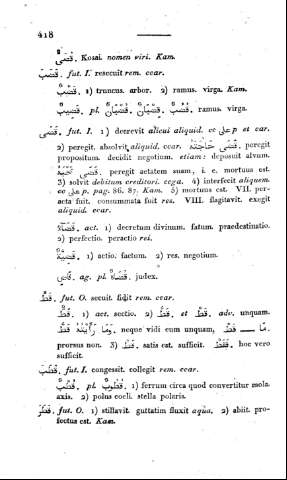 418
قُصَيّ. Kosai. nomen viri. Kam.
قَضَبَ. fut. I. resecuit rem. ccar.
قَضْب. 1) truncus. arbor. 2) ramus. virga. Kam.
قَضِيب. pl. قُضْبَان. قِضْبَان. قُضُب. ramus. virga.
قَضَى. fut. I. 1) decrevit alicui aliquid. cc على p et car.
2) peregit. absolvit aliquid. ccar. قَضَى حَاجَتَهُ. peregit
propositum. decidit negotium. etiam: deposuit alvum.
قَضَى نَحْبَهُ. peregit aetatem suam, i. e. mortuus est.
3) solvit debitum creditori. ccga. 4) interfecit aliquem.
cc على p. pag. 86. 87. Kam. 5) mortuus est. VII. per-
acta fuit. consummata fuit res. VIII. flagitavit. exegit
aliquid. ccar.
قَضَاء. act. 1) decretum divinum. fatum. praedestinatio.
2) perfectio. peractio rei.
قَضِيَّة. 1) actio. factum. 2) res. negotium.
قَاضٍ. ag. pl. قُضَاة. judex.
قَطَّ. fut. O. secuit. fidit rem. ccar.
قَطّ. 1) act. sectio. 2) قَطُّ. et قَطّ. adv. unquam.
وَمَا رَأَيْتُهُ قَطُّ. neque vidi eum unquam, مَا — قَطُّ.
prorsus non. 3) قَطْ. satis est. sufficit. فَقَطْ. hoc vero
sufficit.
قَطَبَ. fut. I. congessit. collegit rem. ccar.
قُطْب. pl. قُطُوب. 1) ferrum circa quod convertitur mola.
axis. 2) polus coeli. stella polaris.
قَطَرَ. fut. O. 1) stillavit. guttatim fluxit aqua. 2) abiit. pro-
fectus est. Kam.